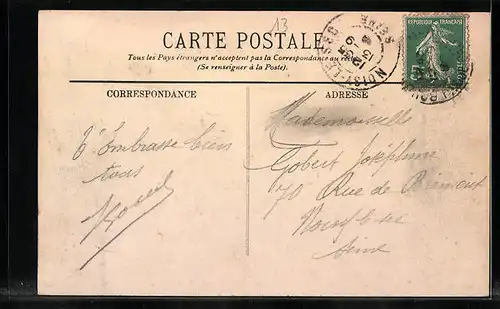 13
CARTE POSTALE
Tous les Pays étrangers n'acceptent pas la Correspondance au recto
(Se renseigner à la Poste).
CORRESPONDANCE
ADRESSE
NOISY-LE-SEC
SEINE
REPUBLIQUE FRANÇAISE
J'Embrasse bien
tous
Mademoiselle
Gobert Joséphine
70 Rue de
Noisy le sec
Seine